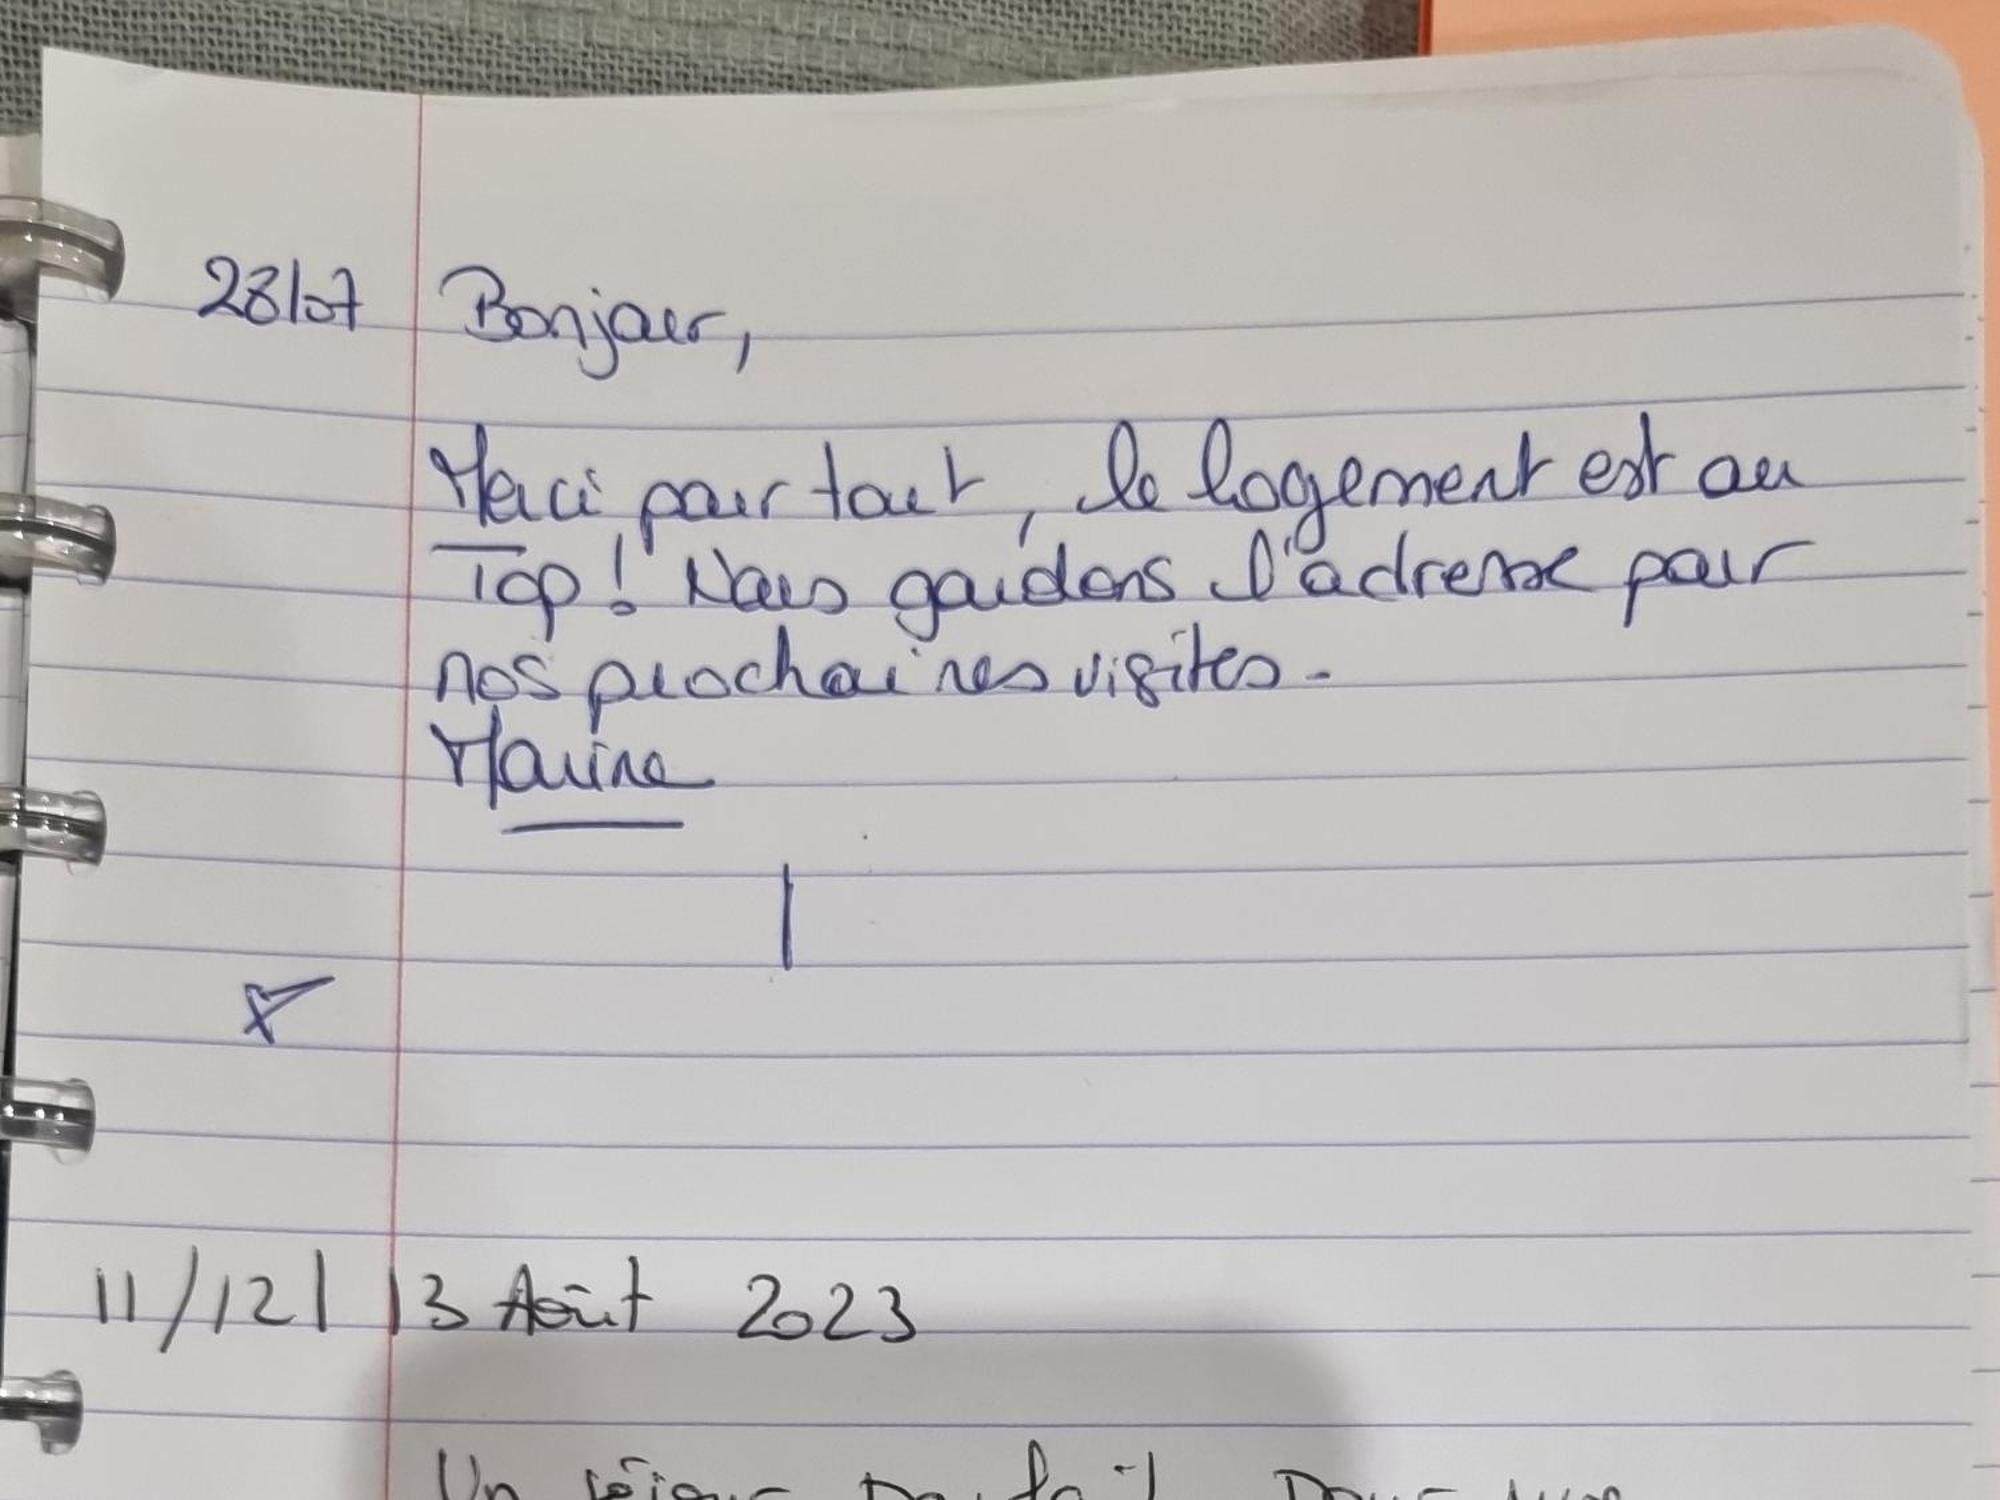 28/07 Bonjour,
Merci pour tout, le logement est au
Top! Nous gardons l'adresse pour
nos prochaines visites.
Marine
11/12/ 13 Août 2023
Un séjour parfait pour